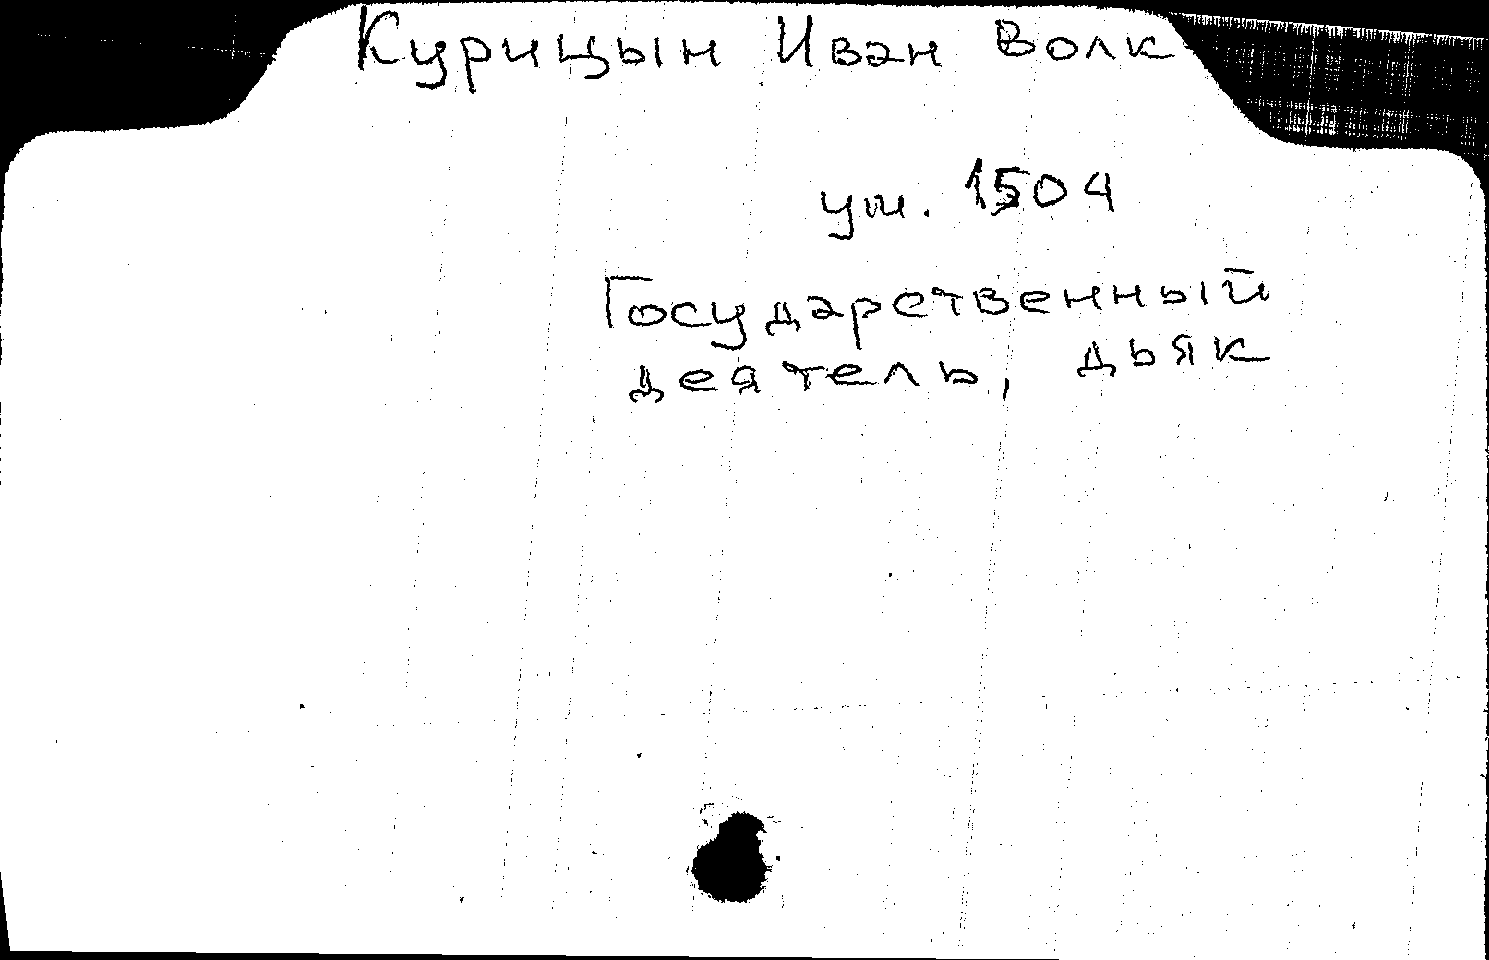 Курицын Иван Волк
ум. 1504
Государственный
деятель, дьяк